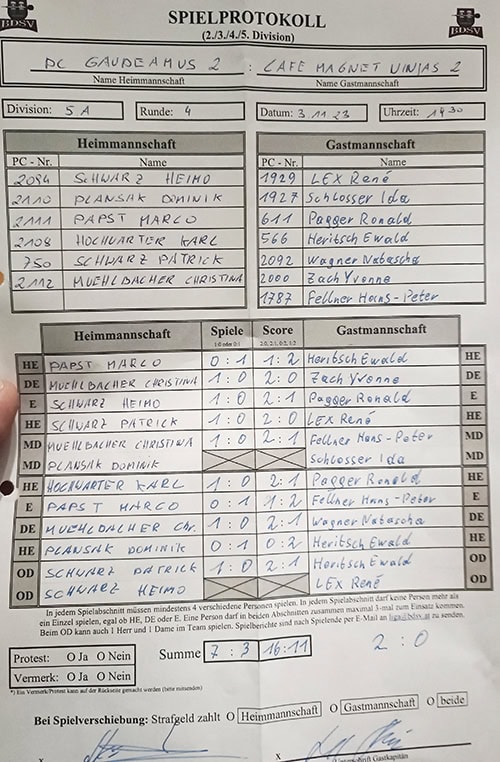 BDSV SPIELPROTOKOLL BDSV
(2./3./4./5. Division)
DC GAUDEAMUS 2 : CAFE MAGNET NINJAS 2
Name Heimmannschaft Name Gastmannschaft
Division: 5 A Runde: 4 Datum: 3.11.23 Uhrzeit: 1930
Heimmannschaft Gastmannschaft
PC - Nr. Name PC - Nr. Name
2094 SCHWARZ HEIMO 1929 LEX René
2110 PLANSAK DOMINIK 1927 Schlosser Ida
2111 PAPST MARCO 611 Pagger Ronald
2108 HOCHWARTER KARL 566 Heritsch Ewald
750 SCHWARZ PATRICK 2092 Wagner Natascha
2112 MUEHLBACHER CHRISTINA 2000 Zach Yvonne
1787 Fellner Hans-Peter
Heimmannschaft Spiele Score Gastmannschaft
1:0 oder 0:1 2:0, 2:1, 0:2, 1:2
HE PAPST MARCO 0:1 1:2 Heritsch Ewald HE
DE MUEHLBACHER CHRISTINA 1:0 2:0 Zach Yvonne DE
E SCHWARZ HEIMO 1:0 2:1 Pagger Ronald E
HE SCHWARZ PATRICK 1:0 2:0 LEX René HE
MD MUEHLBACHER CHRISTINA 1:0 2:1 Fellner Hans-Peter MD
MD PLANSAK DOMINIK Schlosser Ida MD
HE HOCHWARTER KARL 1:0 2:1 Pagger Ronald HE
E PAPST MARCO 0:1 1:2 Fellner Hans-Peter E
DE MUEHLBACHER CHR. 1:0 2:1 Wagner Natascha DE
HE PLANSAK DOMINIK 0:1 0:2 Heritsch Ewald HE
OD SCHWARZ PATRIK 1:0 2:1 Heritsch Ewald OD
OD SCHWARZ HEIMO LEX René OD
In jedem Spielabschnitt müssen mindestens 4 verschiedene Personen spielen. In jedem Spielabschnitt darf keine Person mehr als
ein Einzel spielen, egal ob HE, DE oder E. Eine Person darf in beiden Abschnitten zusammen maximal 3-mal zum Einsatz kommen.
Beim OD kann auch 1 Herr und 1 Dame im Team spielen. Spielberichte sind nach Spielende per E-Mail an liga@bdsv.at zu senden.
Protest: O Ja O Nein Summe 7 : 3 16:11 2:0
Vermerk: O Ja O Nein
*) Ein Vermerk/Protest kann auf der Rückseite gemacht werden (bitte mitsenden)
Bei Spielverschiebung: Strafgeld zahlt O Heimmannschaft O Gastmannschaft O beide
x x
Unterschrift Gastkapitän